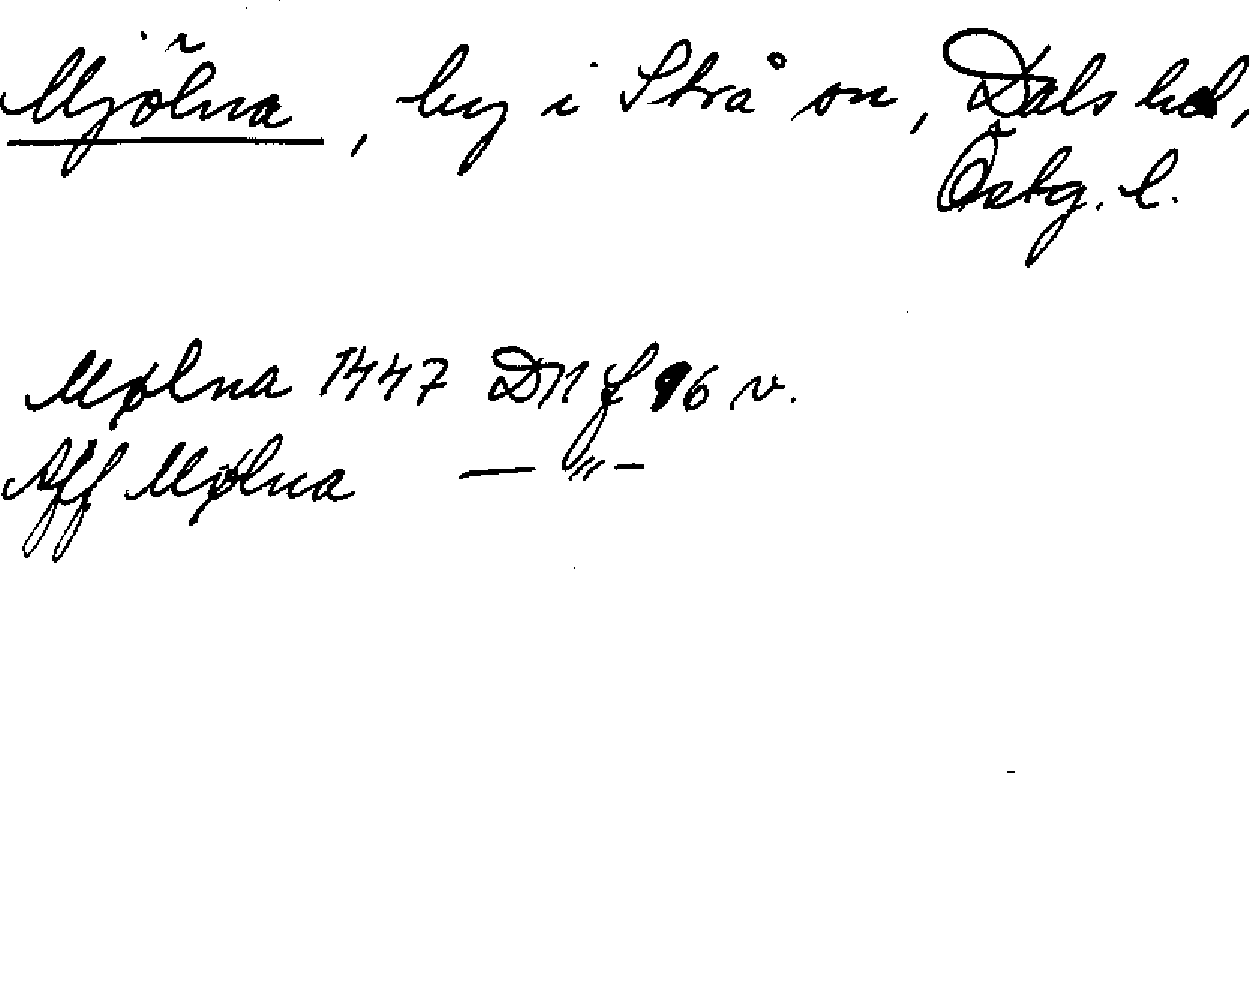 Mjölna, by i Strå sn, Dals hd,
Östg. l.
Mølna 1447 D11 f 96 v.
Aff Mølna — " —